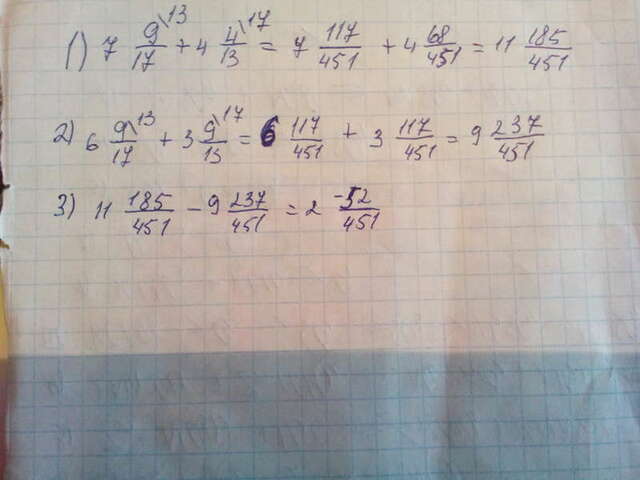 1) 7 9\13/17 + 4 4\17/13 = 7 117/451 + 4 68/451 = 11 185/451
2) 6 9\13/17 + 3 9\17/13 = 6 117/451 + 3 117/451 = 9 237/451
3) 11 185/451 - 9 237/451 = 2 -52/451